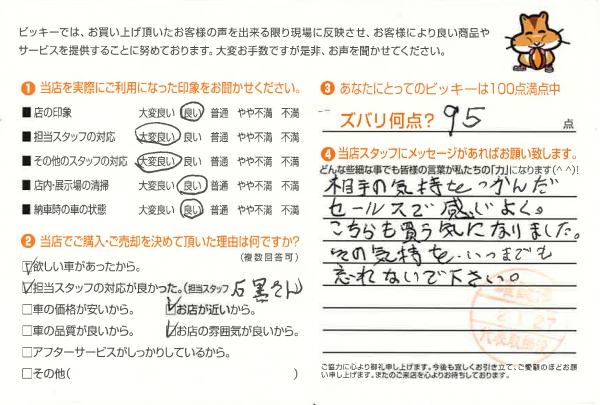 ビッキーでは、お買い上げ頂いたお客様の声を出来る限り現場に反映させ、お客様により良い商品や
サービスを提供することに努めております。大変お手数ですが是非、お声を聞かせてください。
❶ 当店を実際にご利用になった印象をお聞かせください。
■ 店の印象 大変良い 良い 普通 やや不満 不満
■ 担当スタッフの対応 大変良い 良い 普通 やや不満 不満
■ その他のスタッフの対応 大変良い 良い 普通 やや不満 不満
■ 店内・展示場の清掃 大変良い 良い 普通 やや不満 不満
■ 納車時の車の状態 大変良い 良い 普通 やや不満 不満
❷ 当店でご購入・ご売却を決めて頂いた理由は何ですか?
(複数回答可)
☑欲しい車があったから。
☑担当スタッフの対応が良かった。(担当スタッフ 石黒さん)
□車の価格が安いから。 ☑お店が近いから。
□車の品質が良いから。 ☑お店の雰囲気が良いから。
□アフターサービスがしっかりしているから。
□その他( )
❸ あなたにとってのビッキーは100点満点中
ズバリ何点? 95 点
❹ 当店スタッフにメッセージがあればお願い致します。
どんな些細な事でも皆様の言葉が私たちの「力」になります(^^)!
相手の気持をつかんだ
セールスで感じよく。
こちらも買う気になりました。
その気持を、いつまでも
忘れないで下さい。
ご協力に心より御礼申し上げます。今後も宜しくお引き立て、ご愛顧のほどお願
い申し上げます。またのご来店を心よりお待ちしております。